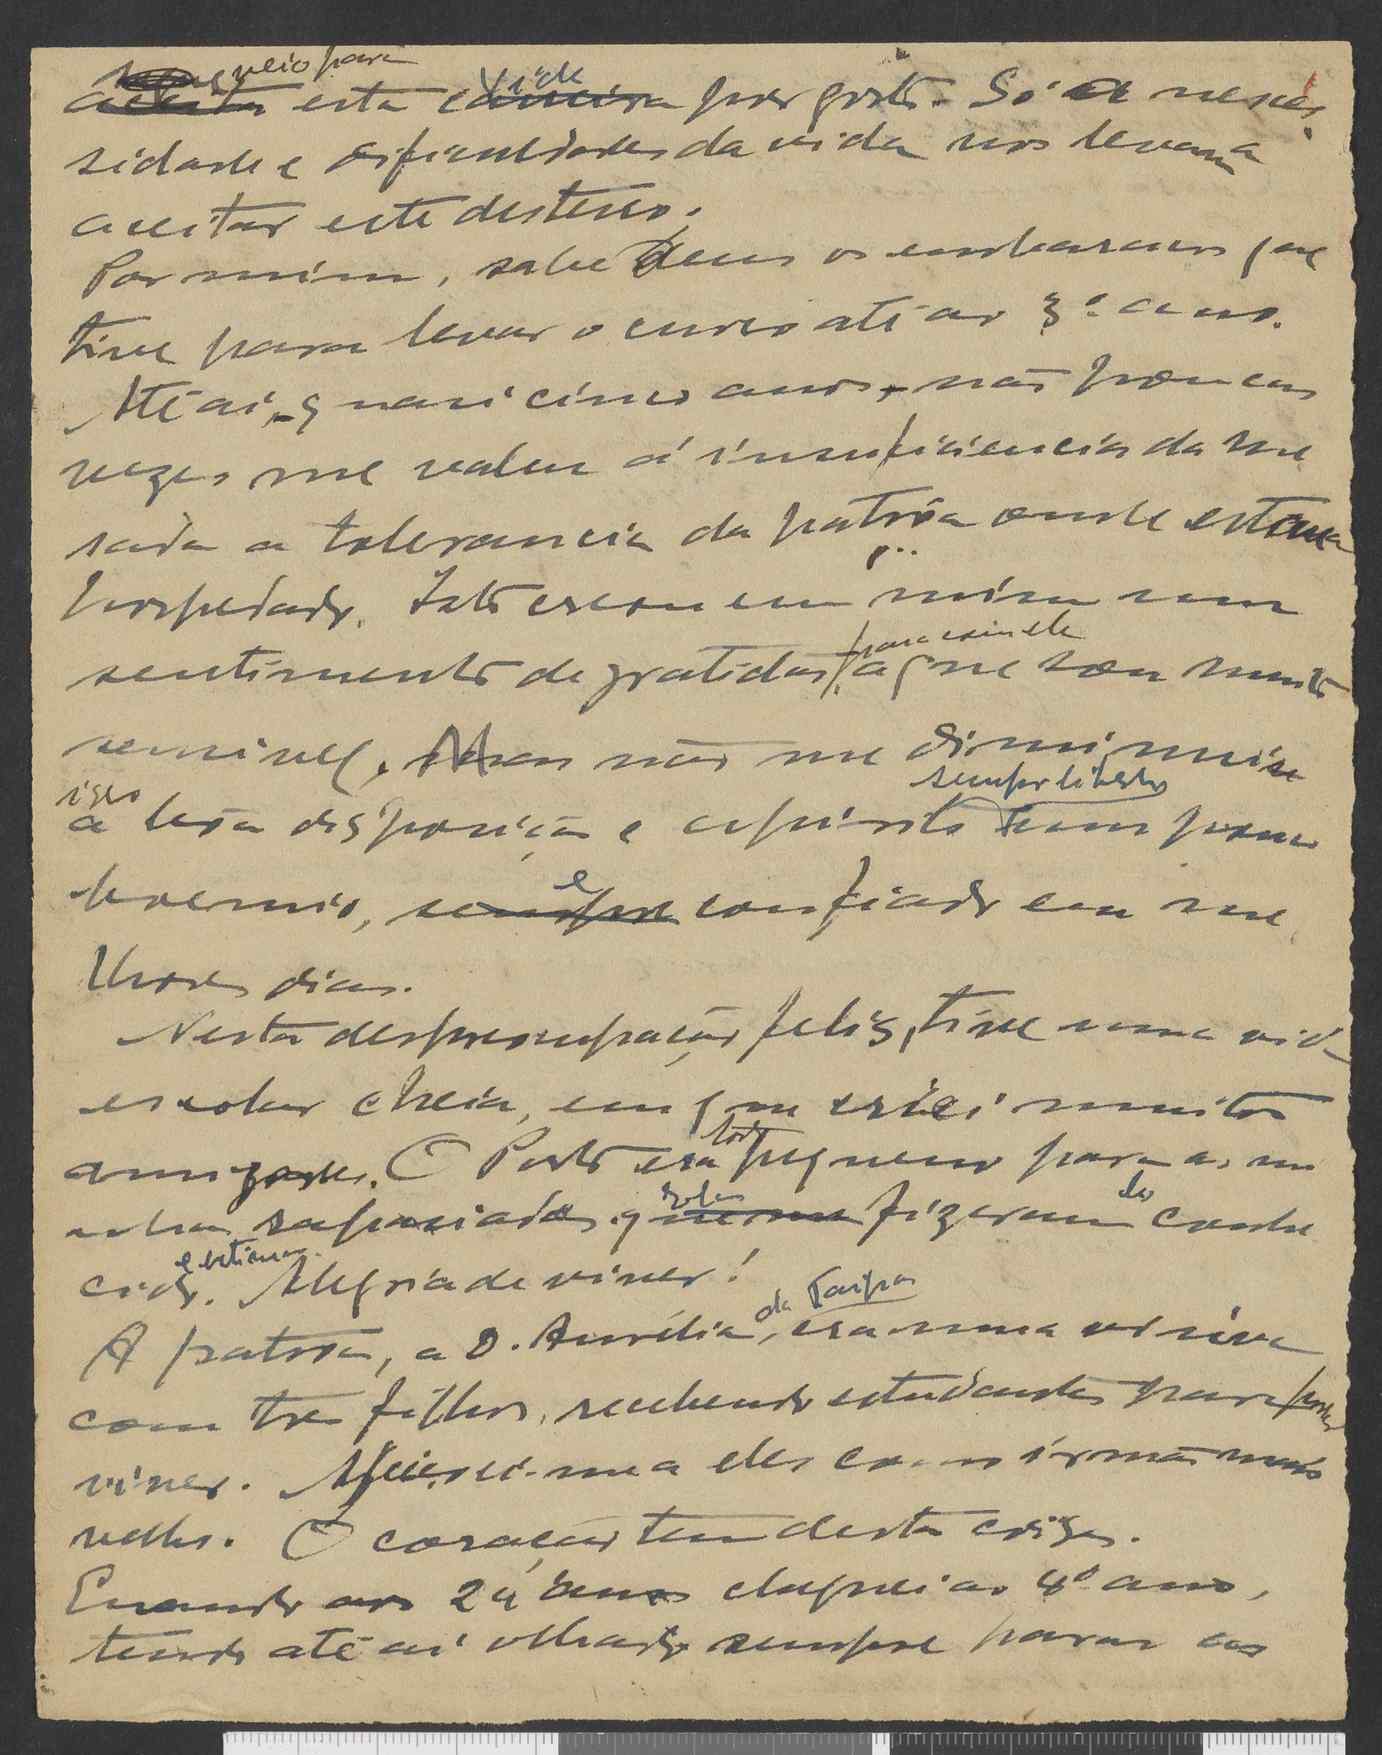 veio para
esta vida por gosto. Só a neces
sidade e dificuldades da vida nos levam a
aceitar este desterro.
Por mim, sabe Deus os embaraços que
tive para levar o curso até ao 3º ano.
Até aí, quasi cinco anos, não poucas
vezes me valeu á insuficiencia da me
sada a tolerancia da patrôa onde estava
hospedado. Isto creou em mim um
sentimento de gratidão para com ela a que sou muito
sensivel. Mas não me diminuiu
isso
a bôa disposição e espirito sempre liberto um pouco
boemio, sempre e confiado em me
lhores dias.
Nesta despreocupação feliz, tive uma vida
escolar cheia, em que criei muitas
amizades. O Porto era todo pequeno para a mi
nha rapaziada, fizeram do conhe
cido. Alegria de viver!
A patrôa, a D. Aurélia, da Taipa era uma viuva
com tres filhos, recebendo estudantes para poder
viver. Afeiçoei-me a eles como irmão mais
velho. O coração tem destas coisas.
Quando aos 24 anos cheguei ao 4º ano,
tendo até aí olhado sempre para as